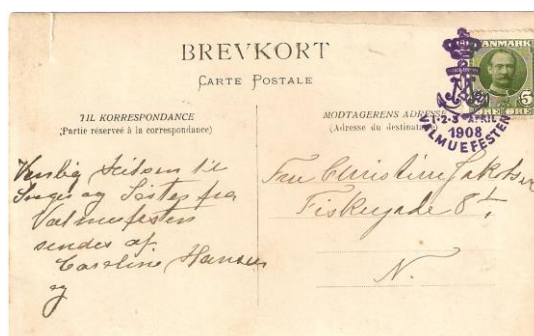 BREVKORT
CARTE POSTALE
TIL KORRESPONDANCE
(Partie réserveé à la correspondance)
MODTAGERENS ADRESSE
(Adresse du destinataire)
DANMARK
5
1·2·3 APRIL
1908
VALMUEFESTEN
Venlig Hilsen til
Inger og Søster fra
Valmuefesten
sendes af
Caroline Hansen
og
Fru Christine Jakobsen
Fiskergade 8
N.